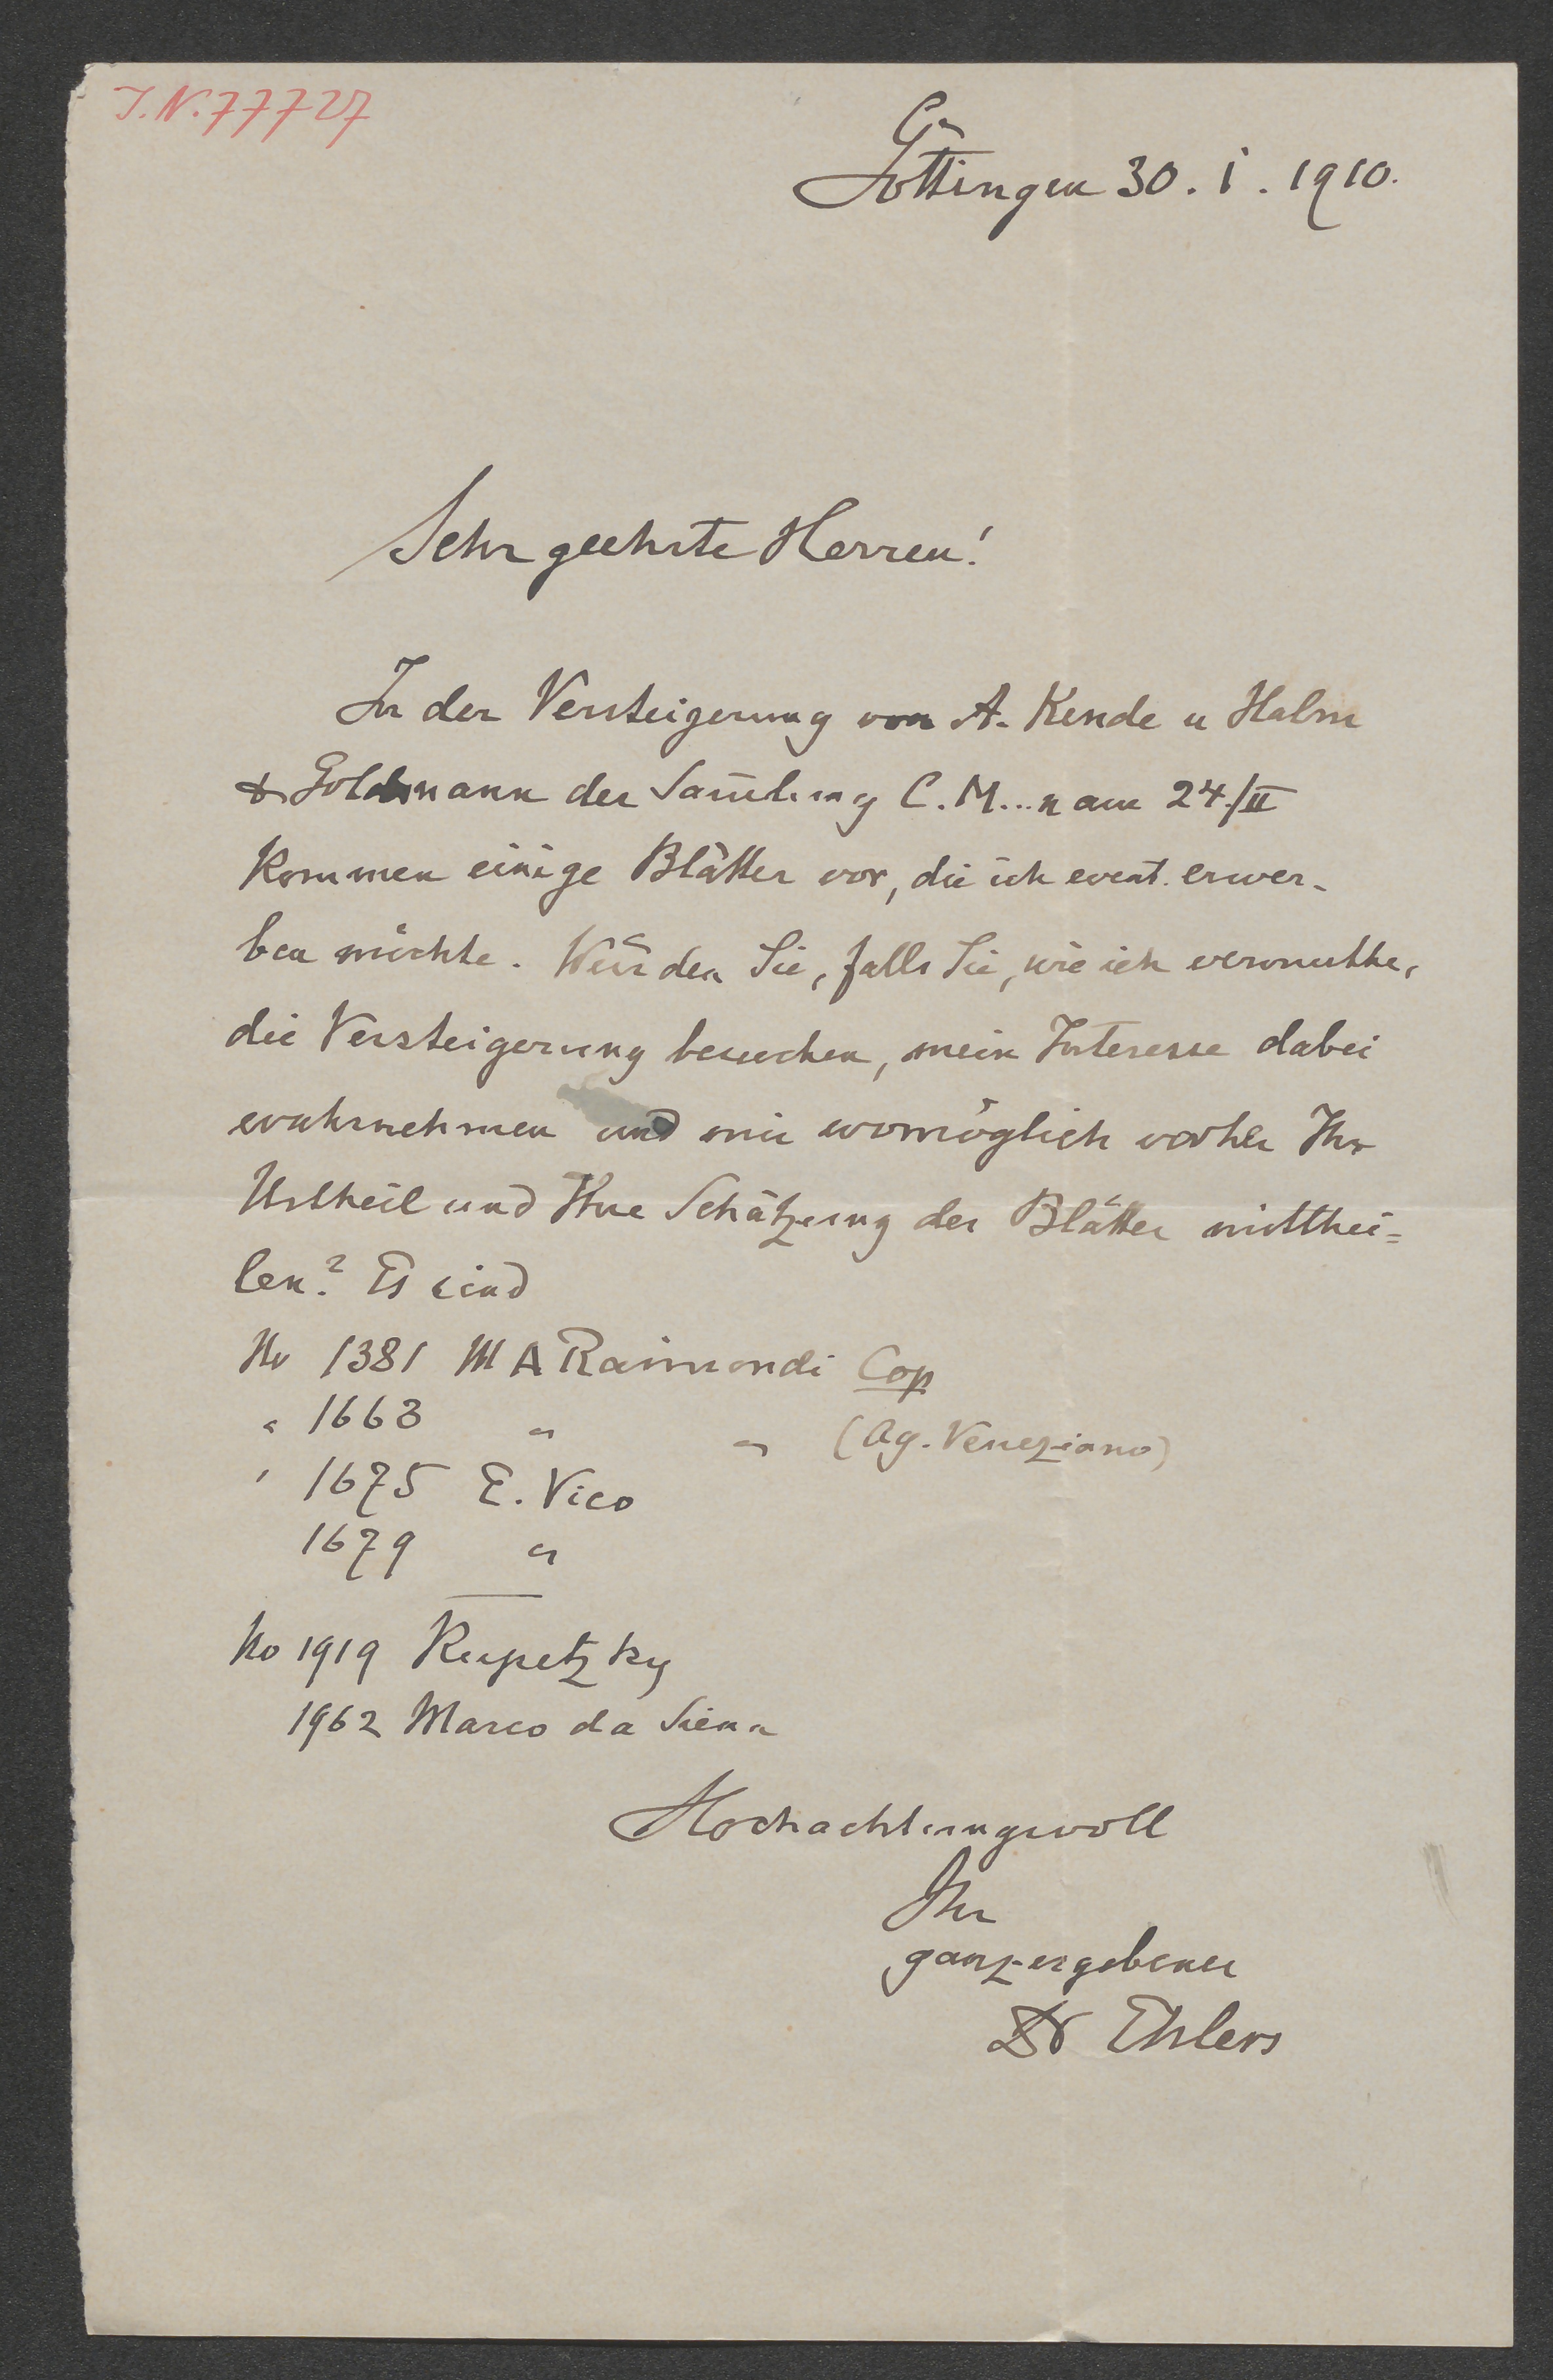 I.N. 77727
Göttingen 30. I. 1910.
Sehr geehrte Herren!
In der Versteigerung von A. Kende u Halm
& Goldmann der Sam̄lung C. M...n am 24./II
kommen einige Blätter vor, die ich event. erwer-
ben möchte. Würden Sie, falls Sie, wie ich vermuthe,
die Versteigerung besuchen, mein Interesse dabei
wahrnehmen und mir womöglich vorher Ihr
Urtheil und Ihre Schätzung der Blätter mitthei=
len? Es sind
No 1381 M A Raimondi Cop
" 1663 " " (Ag. Veneziano)
" 1675 E. Vico
1679 "
No 1919 Kupetzky
1962 Marco da Siena
Hochachtungsvoll
Ihr
ganz ergebener
Dr Ehlers